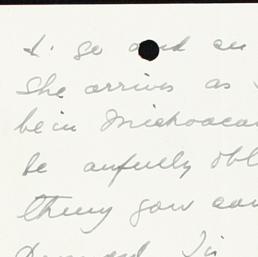 I. go and
She arrives as
be in Michoacan
be awfully obl
thing you can